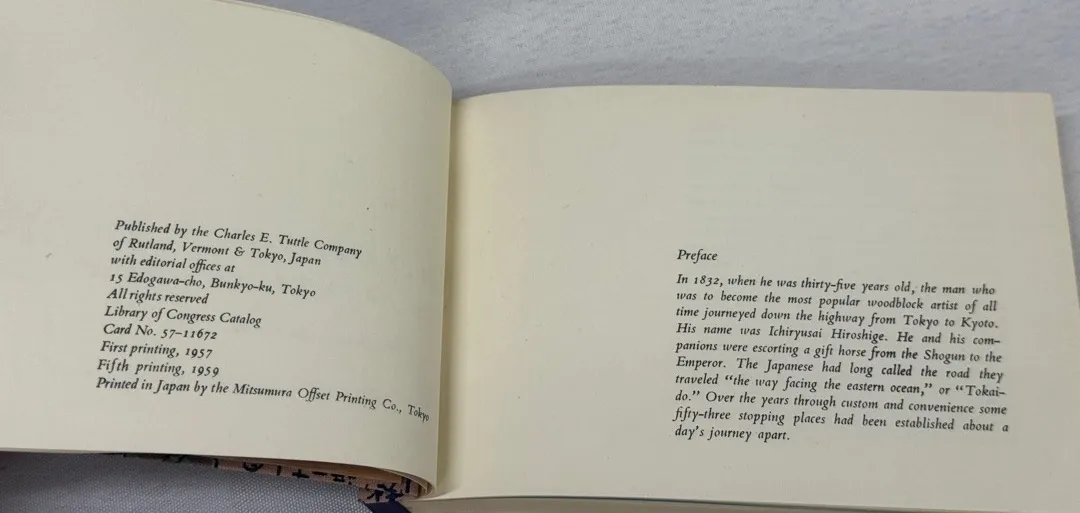 Published by the Charles E. Tuttle Company
of Rutland, Vermont & Tokyo, Japan
with editorial offices at
15 Edogawa-cho, Bunkyo-ku, Tokyo
All rights reserved
Library of Congress Catalog
Card No. 57-11672
First printing, 1957
Fifth printing, 1959
Printed in Japan by the Mitsumura Offset Printing Co., Tokyo
Preface
In 1832, when he was thirty-five years old, the man who
was to become the most popular woodblock artist of all
time journeyed down the highway from Tokyo to Kyoto.
His name was Ichiryusai Hiroshige. He and his com-
panions were escorting a gift horse from the Shogun to the
Emperor. The Japanese had long called the road they
traveled "the way facing the eastern ocean," or "Tokai-
do." Over the years through custom and convenience some
fifty-three stopping places had been established about a
day's journey apart.